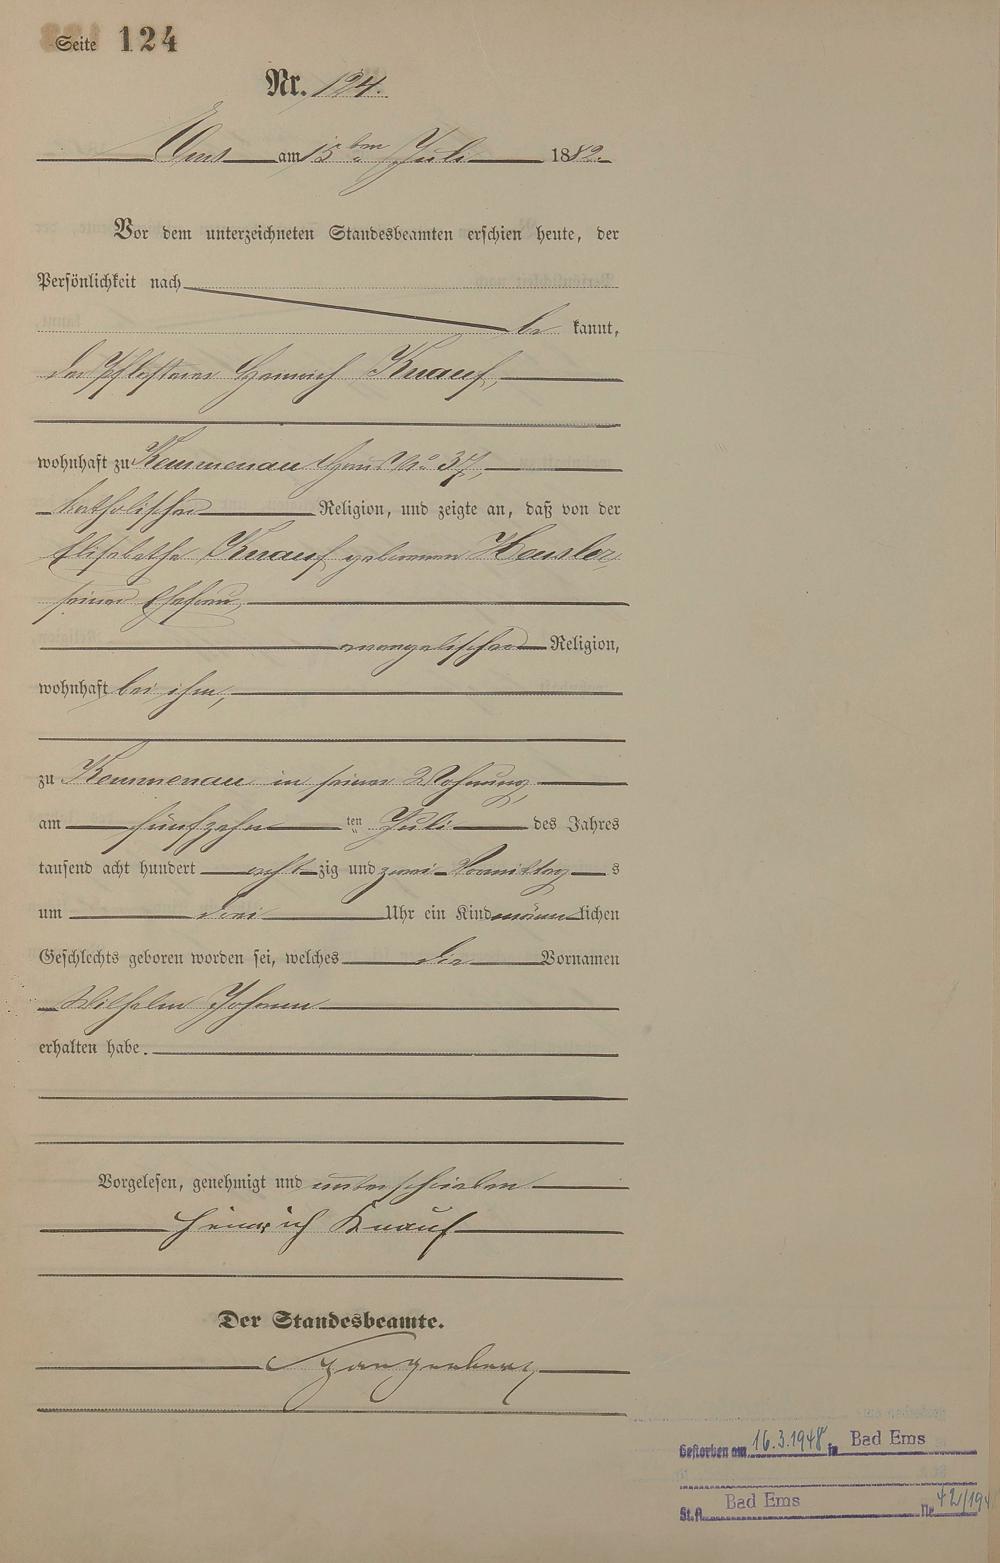 Seite 124
Nr. 124.
Ems am 15ten Juli 1882.
Vor dem unterzeichneten Standesbeamten erschien heute, der
Persönlichkeit nach
be kannt,
der Pflasterer Heinrich Knauf,
wohnhaft zu Kemmenau Haus No 37,
katholischer Religion, und zeigte an, daß von der
Elisabetha Knauf geborenen Hausler
seiner Ehefrau,
evangelischer Religion,
wohnhaft bei ihm,
zu Kemmenau in seiner Wohnung,
am fünfzehn ten Juli des Jahres
tausend acht hundert acht zig und zwei Vormittag s
um drei Uhr ein Kind männ lichen
Geschlechts geboren worden sei, welches die Vornamen
Wilhelm Johann
erhalten habe.
Vorgelesen, genehmigt und unterschrieben
Heinrich Knauf
Der Standesbeamte.
Gestorben am 16.3.1948 in Bad Ems
St.A. Bad Ems Nr. 42/194